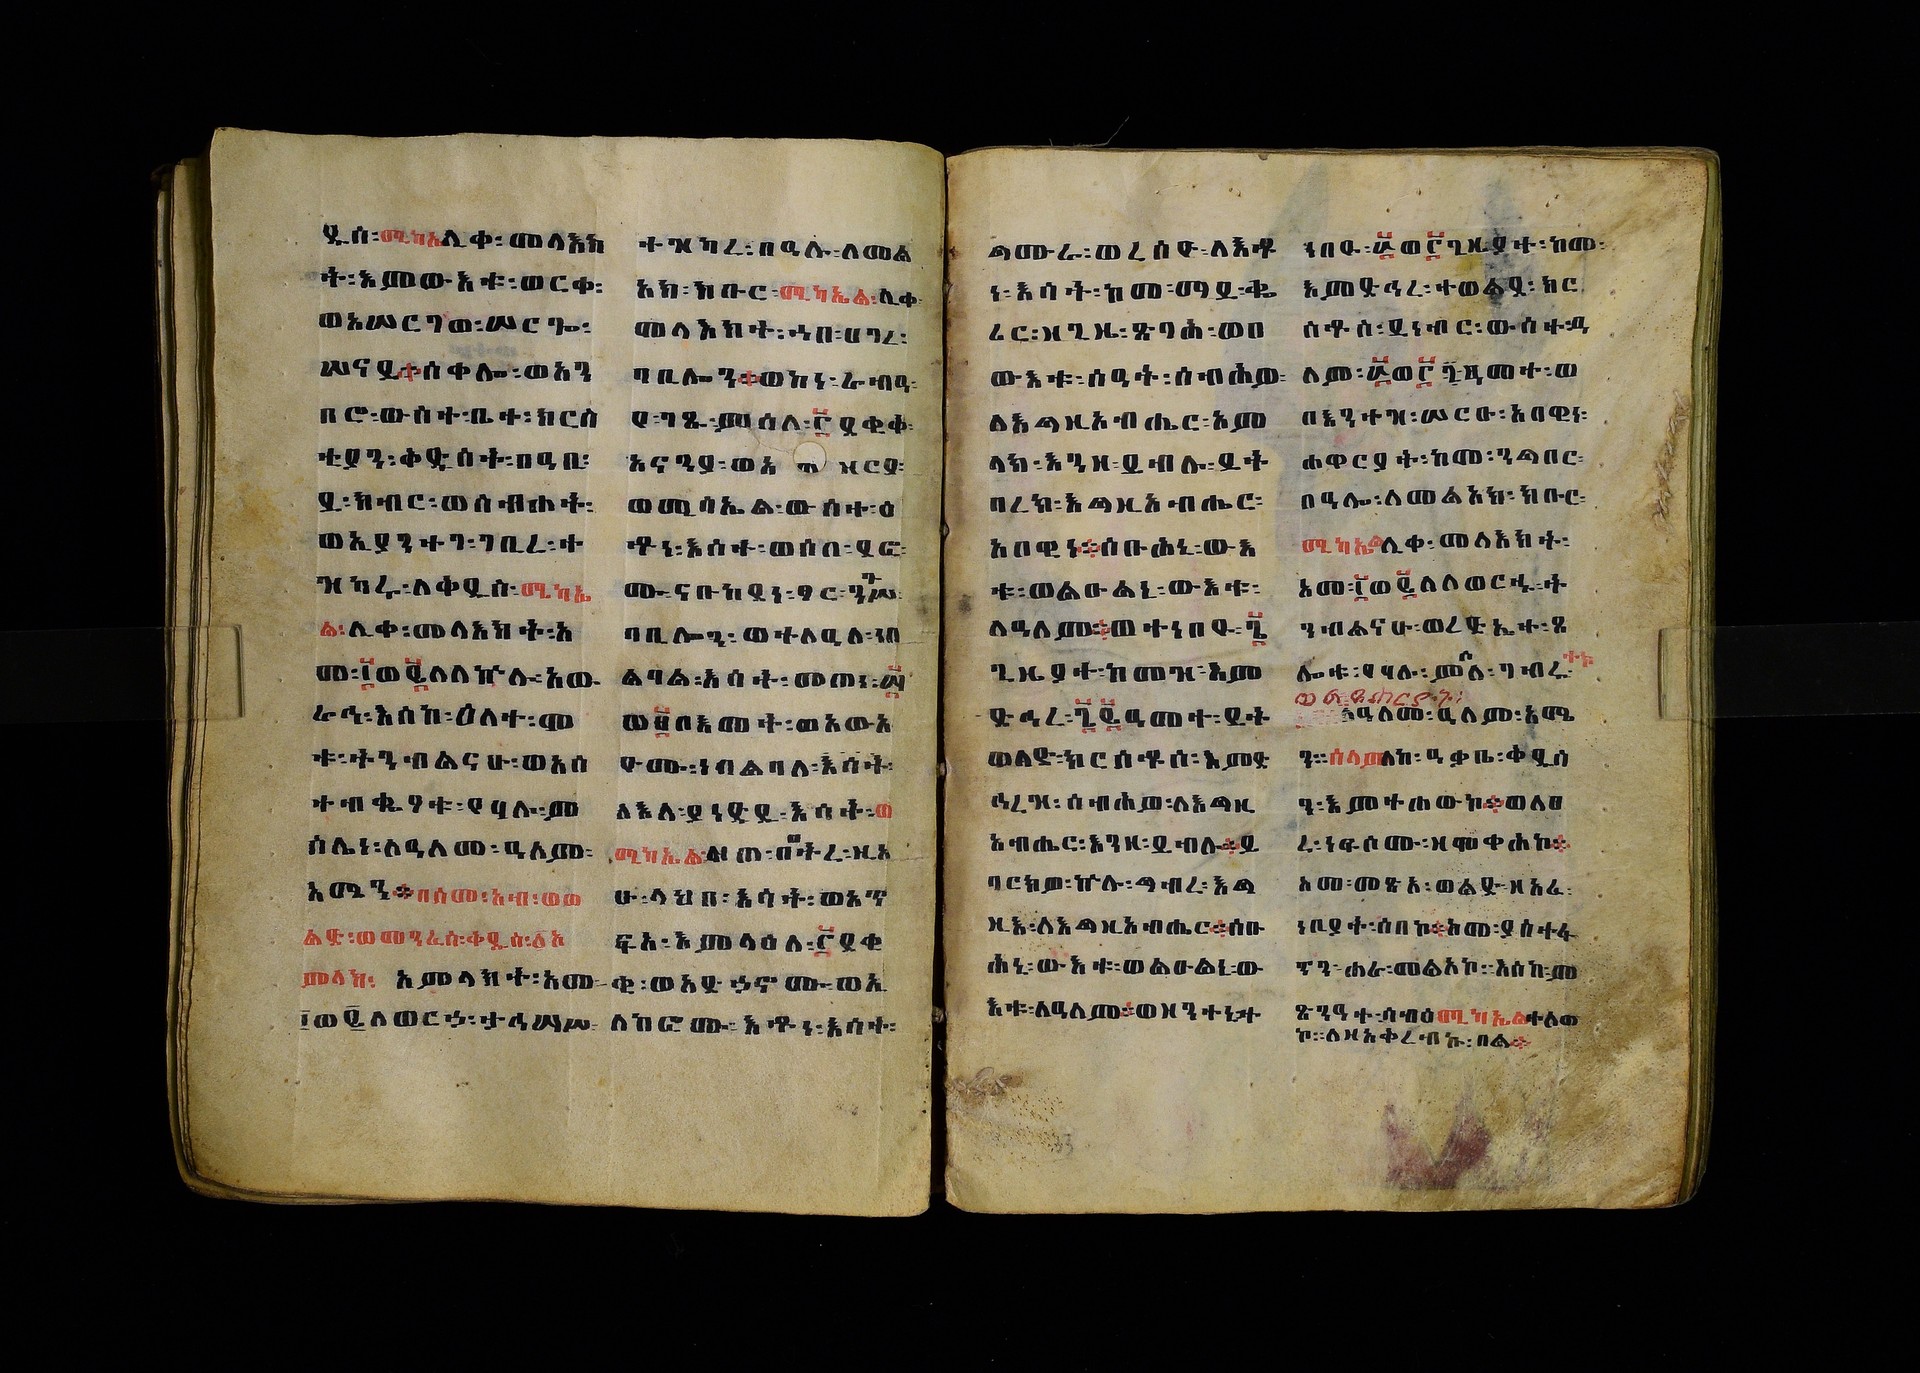 ዲስ፡ሚካኤሊቀ፡መላእክ
ት፡እምውእቱ፡ወርቀ፡
ወአሠርገወ፡ሠርጐ፡
ሠናየ፡ሰቀሎ፡ወአን
በሮ፡ውስተ፡ቤተ፡ክርስ
ቲያን፡ቅድስት፡በዓቢ
ይ፡ክብር፡ወስብሐት፡
ወኢያንተገ፡ገቢረ፡ተ
ዝካሩ፡ለቅዱስ፡ሚካኤ
ል፡ሊቀ፡መላእክት፡አ
መ፡፲ወ፪ለለኵሉ፡አው
ራኅ፡እስከ፡ዕለተ፡ሞ
ቱ፡ትንብልናሁ፡ወአስ
ተብቊዖቱ፡የሃሉ፡ም
ስሌነ፡ለዓለመ፡ዓለም፡
አሜን፡በስመ፡አብ፡ወወ
ልድ፡ወመንፈስ፡ቅዱስ፡፩አ
ምላክ፡ አምላክት፡አመ
፲ወ፪ለወርኃ፡ታኅሣሥ፡
ተዝካረ፡በዓሉ፡ለመል
አክ፡ክቡር፡ሚካኤል፡ሊቀ፡
መላእክት፡ኀበ፡ሀገረ፡
ባቢሎን፡ወከነ፡ራብዓ፡
የ፡ገጹ፡ምስለ፡፫ደቂቅ፡
አናንያ፡ወአ ዛርያ፡
ወሚሳኤል፡ውስተ፡ዕ
ቶነ፡እሳተ፡ወሰበ፡ይፎ
ሙ፡ናቡከደነ፡ፆር፡ንጉሠ፡
ባቢሎን፡ወተለዓለ፡ነበ
ልባል፡እሳት፡መጠነ፡፵
ወ፱በእመት፡ወአውአ
ዮሙ፡ነብልባለ፡እሳት፡
ለእለ፡ያነድዱ፡እሳት፡ወ
ሚካኤል፡ጠ፡በትረ፡ዚአ
ሁ፡ላህበ፡እሳት፡ወአጥ
ፍአ፡እምላዕለ፡፫ደቂ
ቂ፡ወአድኃኖሙ፡ወአ
ለከፎሙ፡እቶነ፡እሳት፡
ጫሙራ፡ወረሰዮ፡ለእቶ
ነ፡እሳት፡ከመ፡ማይ፡ቈ
ሪር፡ዘጊዜ፡ጽባሕ፡ወበ
ውእቱ፡ሰዓት፡ሰብሕዎ፡
ለእግዚአብሔር፡አም
ላክ፡እንዘ፡ይብሉ፡ይት
ባረክ፡እግዚአብሔር፡
አበዊነ፡ስቡሕኒ፡ውእ
ቱ፡ወልዑልኒ፡ውእቱ፡
ለዓለም፡ወተነበዮ፡፯
ጊዜያተ፡ከመዝ፡እም
ድኅረ፡፯፪ዓመት፡ይት
ወለድ፡ክርስቶስ፡እምድ
ኅረዝ፡ሰብሕዎ፡ለእግዚ
አብሔር፡እንዘ፡ይብሉ፡ይ
ባርክዎ፡ኵሉ፡ግብረ፡እግ
ዚእ፡ለእግዚአብሔር፡ስቡ
ሕኒ፡ውእቱ፡ወልዑልኒ፡ው
እቱ፡ለዓለም፡ወዘንተ፡
ነበዩ፡፴ወ፫ጊዜያተ፡ከመ፡
እምድኅረ፡ተወልደ፡ክር
ስቶስ፡ይነብር፡ውስተ፡ዓ
ለም፡፴ወ፫ዓመተ፡ወ
በእንተዝ፡ሠርዑ፡አበዊነ፡
ሐዋርያት፡ከመ፡ንግበር፡
በዓሎ፡ለመልአክ፡ክቡር፡
ሚካኤልሊቀ፡መላእክት፡
አመ፡፲ወ፪ለለወርኁ፡ት
ንብልናሁ፡ወረድኤተ፡ጸ
ሎቱ፡የሃሉ፡ምስለ፡ገብሩ፡
ለዓለመ፡ዓለም፡አሜ
ን፡፡ሰላምለከ፡ዓቃቤ፡ቅዱሳ
ን፡እምተሐውኮ፡ወለፀ
ረ፡ነፍሶሙ፡ዘሞቀሕኮ፡
አመ፡መጽአ፡ወልድ፡ዘአፈ፡
ነቢያት፡ሰበኮ፡አመ፡ያስተፋ
ኖን፡ሐራ፡መልአኮ፡እስከ፡ም
ጽንዓተ፡ሰብዕሚካኤልተለወ
ኮ፡፡ለዘአቀረብኩ፡በል፡